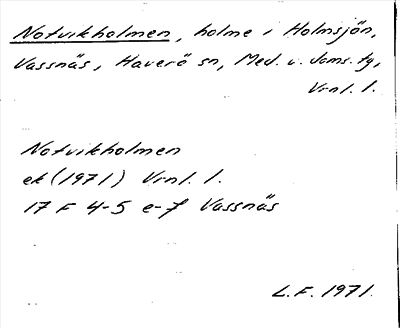 Notvikholmen, holme i Holmsjön,
Vassnäs, Haverö sn, Med. v. doms. tg,
Vrnl. l.
Notvikholmen
ek (1971) Vrnl. l.
17 F 4-5 e-f Vassnäs
L.F. 1971.